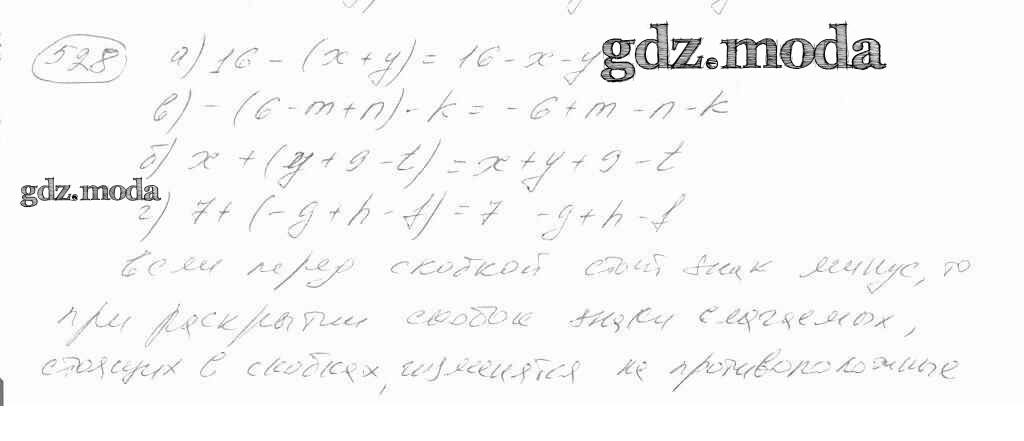 528 а) 16 - (x + y) = 16 - x - y gdz.moda
в) - (6 - m + n) - k = - 6 + m - n - k
б) x + (y + 9 - t) = x + y + 9 - t
gdz.moda
г) 7 + (- g + h - f) = 7 - g + h - f
Если перед скобкой стоит знак минус, то
при раскрытии скобок знаки слагаемых,
стоящих в скобках, изменятся на противоположные